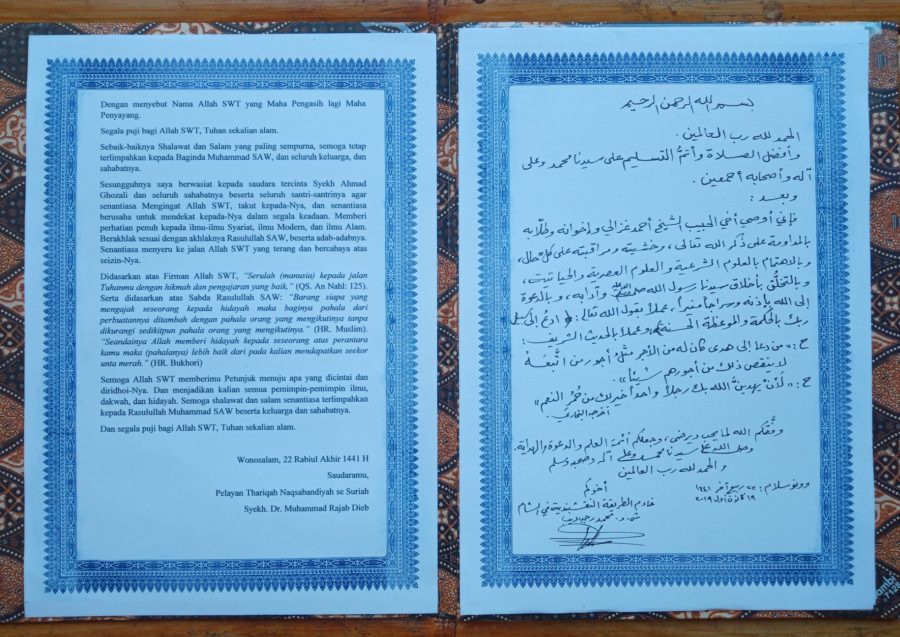 Dengan menyebut Nama Allah SWT yang Maha Pengasih lagi Maha
Penyayang.
Segala puji bagi Allah SWT, Tuhan sekalian alam.
Sebaik-baiknya Shalawat dan Salam yang paling sempurna, semoga tetap
terlimpahkan kepada Baginda Muhammad SAW, dan seluruh keluarga, dan
sahabatnya.
Sesungguhnya saya berwasiat kepada saudara tercinta Syekh Ahmad
Ghozali dan seluruh sahabatnya beserta seluruh santri-santrinya agar
senantiasa Mengingat Allah SWT, takut kepada-Nya, dan senantiasa
berusaha untuk mendekat kepada-Nya dalam segala keadaan. Memberi
perhatian penuh kepada ilmu-ilmu Syariat, ilmu Modern, dan ilmu Alam.
Berakhlak sesuai dengan akhlaknya Rasulullah SAW, beserta adab-adabnya.
Senantiasa menyeru ke jalan Allah SWT yang terang dan bercahaya atas
seizin-Nya.
Didasarkan atas Firman Allah SWT, "Serulah (manusia) kepada jalan
Tuhanmu dengan hikmah dan pengajaran yang baik," (QS. An Nahl: 125).
Serta didasarkan atas Sabda Rasulullah SAW: "Barang siapa yang
mengajak seseorang kepada hidayah maka baginya pahala dari
perbuatannya ditambah dengan pahala orang yang mengikutinya tanpa
dikurangi sedikitpun pahala orang yang mengikutinya." (HR. Muslim).
"Seandainya Allah memberi hidayah kepada seseorang atas perantara
kamu maka (pahalanya) lebih baik dari pada kalian mendapatkan seekor
unta merah." (HR. Bukhori)
Semoga Allah SWT memberimu Petunjuk menuju apa yang dicintai dan
diridhoi-Nya. Dan menjadikan kalian semua pemimpin-pemimpin ilmu,
dakwah, dan hidayah. Semoga shalawat dan salam senantiasa terlimpahkan
kepada Rasulullah Muhammad SAW beserta keluarga dan sahabatnya.
Dan segala puji bagi Allah SWT, Tuhan sekalian alam.
Wonosalam, 22 Rabiul Akbir 1441 H
Saudaramu,
Pelayan Thariqah Naqsabandiyah se Suriah
Syekh. Dr. Muhammad Rajab Dieb
بسم الله الرحمن الرحيم
الحمد لله رب العالمين .
وأفضل الصلاة وأتمُّ التسليم على سيدنا محمد وعلى
آله وأصحابه أجمعين .
وبعد :
فإني أوصي أخي الحبيب الشيخ أحمد غزالي وإخوانه وطلّابه
بالمداومة على ذكر الله تعالى ، وخشيته ومراقبته على كل حال ،
وبالاهتمام بالعلوم الشرعية والعلوم العصرية والحياتية ،
و بالتخلّق بأخلاق سيدنا رسول الله ﷺ وآدابه ، وبالدعوة
إلى الله بإذنه وسراجاً منيراً ، عملاً بقول الله تعالى : ﴿ ادع إلى سبيل
ربك بالحكمة والموعظة الحسنة ﴾ وعملاً بالحديث الشريف :
ح : « من دعا إلى هدى كان له من الأجر مثل أجور من اتَّبعَهُ
لا ينقص ذلك من أجورهم شيئاً » .
ح : « لَأَنْ يهدينَّ الله بك رجلاً واحداً خير لك من حُمْرِ النعم »
أخرجه البخاري
وفَّقكم الله لما يحب ويرضى ، وجعلكم أئمة العلم والدعوة والهداية .
وصلى الله على سيدنا محمد وعلى آله وصحبه وسلم
والحمد لله رب العالمين
وونوسلام : ٢٢ ربيع آخر ١٤٤١
١٩ كانون أول ٢٠١٩
أخوكم
خادم الطريقة النقشبندية في الشام
ش . د . محمد رجب ديب